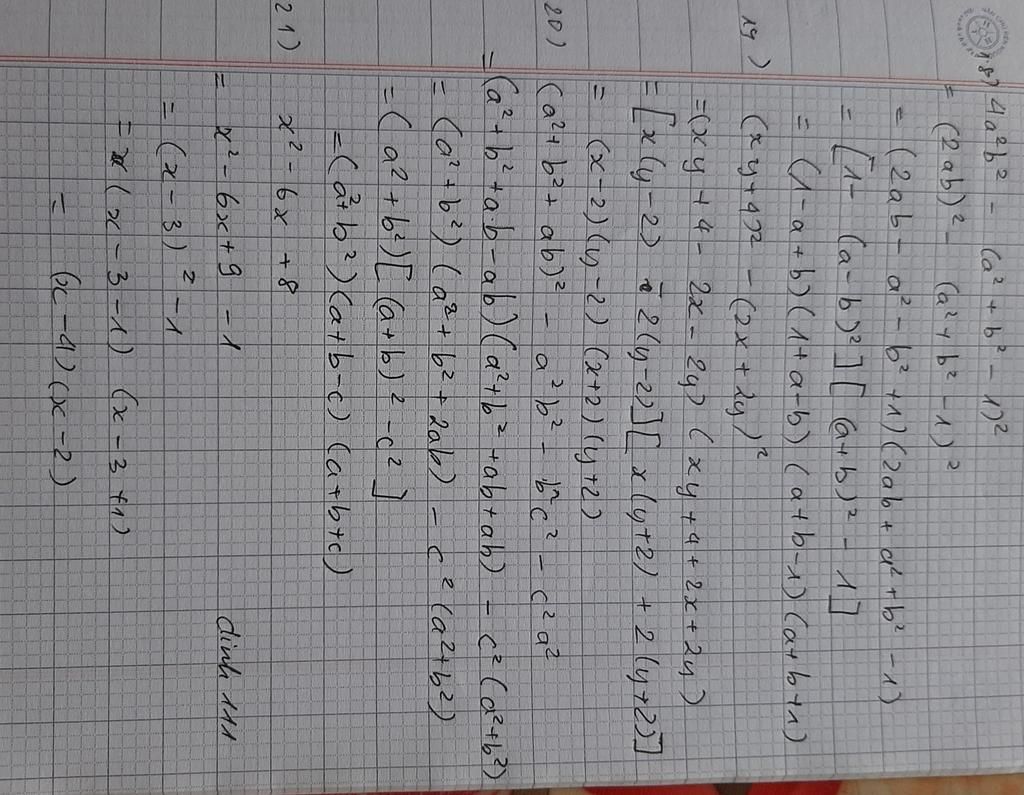 18) 4a²b² - (a² + b² - 1)²
= (2ab)² - (a² + b² - 1)²
= (2ab - a² - b² + 1)(2ab + a² + b² - 1)
= [1 - (a - b)²][(a + b)² - 1]
= (1 - a + b)(1 + a - b)(a + b - 1)(a + b + 1)
19) (xy + 4)² - (2x + 2y)²
= (xy + 4 - 2x - 2y)(xy + 4 + 2x + 2y)
= [x(y - 2) - 2(y - 2)][x(y + 2) + 2(y + 2)]
= (x - 2)(y - 2)(x + 2)(y + 2)
20) (a² + b² + ab)² - a²b² - b²c² - c²a²
= (a² + b² + a.b - ab)(a² + b² + ab + ab) - c²(a² + b²)
= (a² + b²)(a² + b² + 2ab) - c²(a² + b²)
= (a² + b²)[(a + b)² - c²]
= (a² + b²)(a + b - c)(a + b + c)
21) x² - 6x + 8
= x² - 6x + 9 - 1
= (x - 3)² - 1
= (x - 3 - 1)(x - 3 + 1)
= (x - 4)(x - 2)
dinh 111